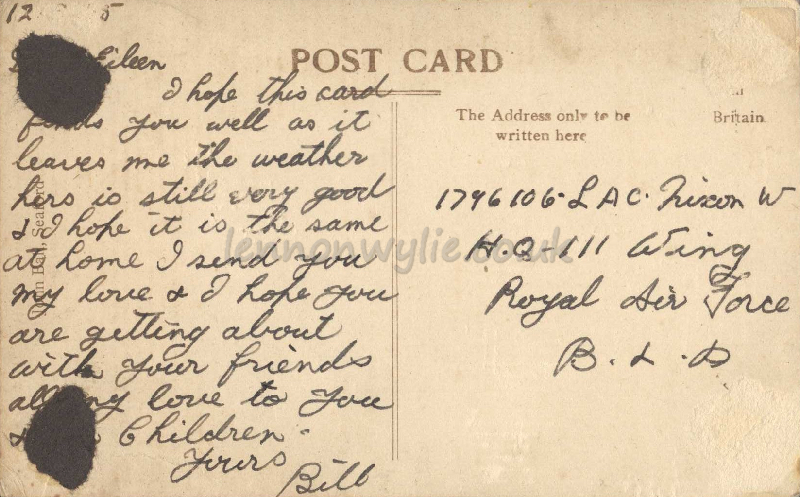 12 5
Eileen
I hope this card
finds you well as it
leaves me the weather
hers is still very good
& I hope it is the same
at home I send you
my love & I hope you
are getting about
with your friends
all my love to you
& Children.
Yours
Bill
POST CARD
The Address only to be
written here
Britain
1796106 L A C. Nixon W
H.Q-111 Wing
Royal Air Force
B. L. A
Seaford
lennonwylie.co.uk